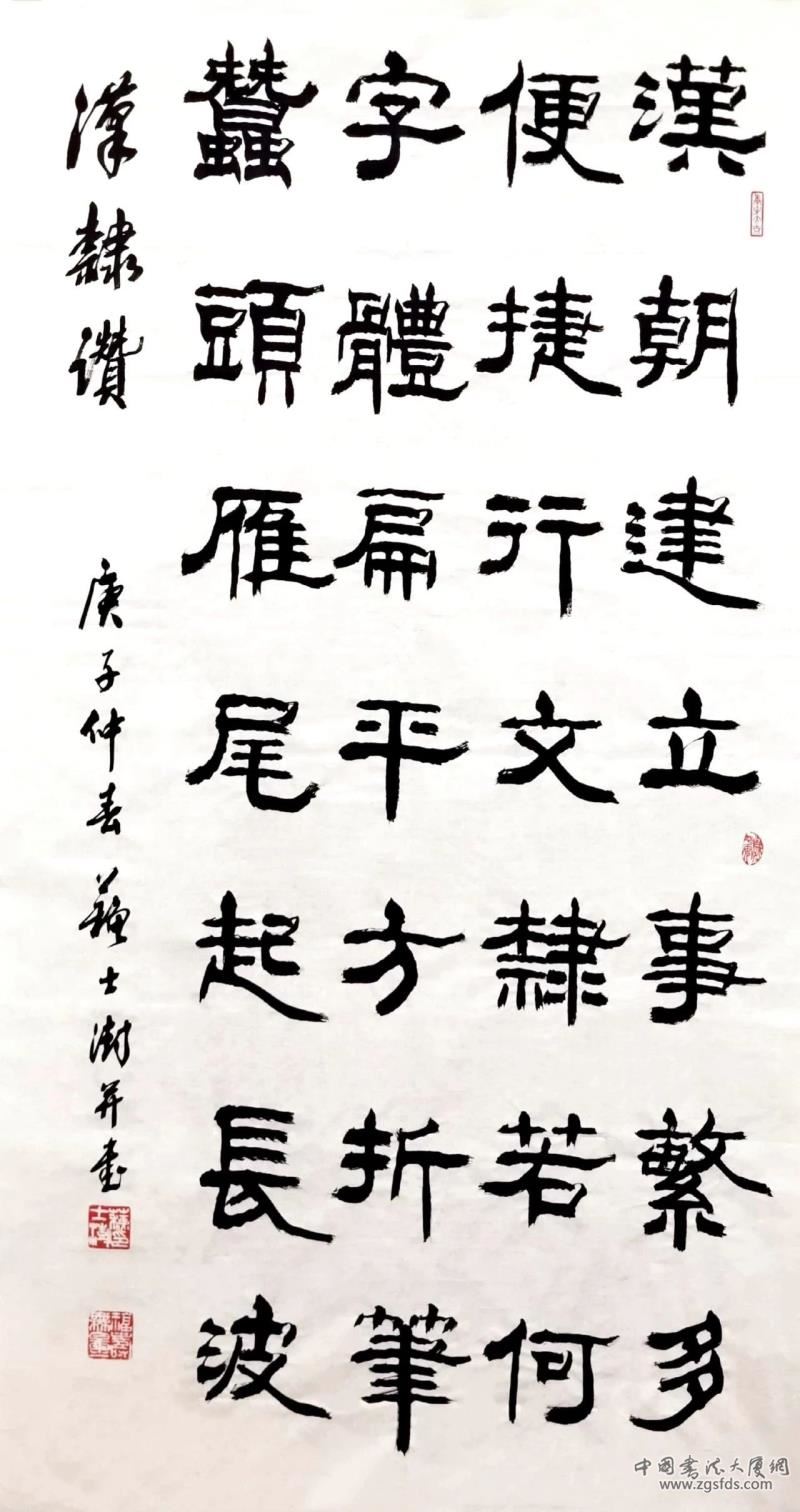 漢朝建立事繁多
便捷行文隸若何
字體扁平方折筆
蠶頭雁尾起長波
漢隸讚
庚子仲春蘇士澍并書
中国书法大厦網
www.zgsfds.com